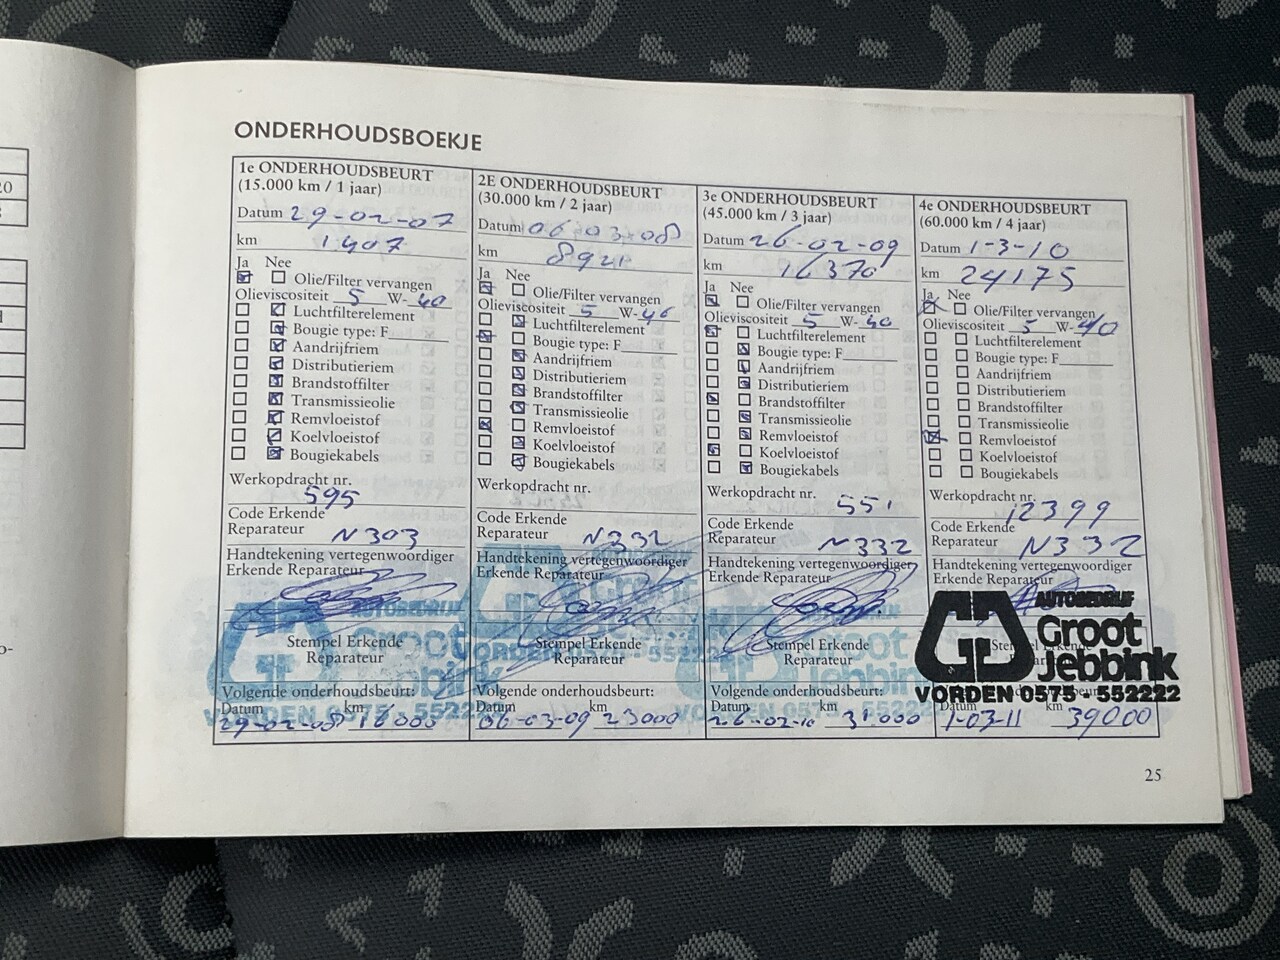 ONDERHOUDSBOEKJE
1e ONDERHOUDSBEURT
(15.000 km / 1 jaar)
Datum 29-02-07
km 1407
Ja Nee
Olie/Filter vervangen
Olieviscositeit 5 W-40
Luchtfilterelement
Bougie type: F
Aandrijfriem
Distributieriem
Brandstoffilter
Transmissieolie
Remvloeistof
Koelvloeistof
Bougiekabels
Werkopdracht nr.
595
Code Erkende
Reparateur N303
Handtekening vertegenwoordiger
Erkende Reparateur
AUTOBEDRIJF
Groot
Jebbink
VORDEN 0575 - 552222
Stempel Erkende
Reparateur
Volgende onderhoudsbeurt:
Datum km
29-02-08 16000
2E ONDERHOUDSBEURT
(30.000 km / 2 jaar)
Datum 06-03-08
km 8921
Ja Nee
Olie/Filter vervangen
Olieviscositeit 5 W-40
Luchtfilterelement
Bougie type: F
Aandrijfriem
Distributieriem
Brandstoffilter
Transmissieolie
Remvloeistof
Koelvloeistof
Bougiekabels
Werkopdracht nr.
Code Erkende
Reparateur N332
Handtekening vertegenwoordiger
Erkende Reparateur
Stempel Erkende
Reparateur
Volgende onderhoudsbeurt:
Datum km
06-03-09 23000
3e ONDERHOUDSBEURT
(45.000 km / 3 jaar)
Datum 26-02-09
km 16370
Ja Nee
Olie/Filter vervangen
Olieviscositeit 5 W-40
Luchtfilterelement
Bougie type: F
Aandrijfriem
Distributieriem
Brandstoffilter
Transmissieolie
Remvloeistof
Koelvloeistof
Bougiekabels
Werkopdracht nr.
551
Code Erkende
Reparateur N332
Handtekening vertegenwoordiger
Erkende Reparateur
Groot
Jebbink
Stempel Erkende
Reparateur
Volgende onderhoudsbeurt:
Datum km
26-02-10 31.000
4e ONDERHOUDSBEURT
(60.000 km / 4 jaar)
Datum 1-3-10
km 24175
Ja Nee
Olie/Filter vervangen
Olieviscositeit 5 W-40
Luchtfilterelement
Bougie type: F
Aandrijfriem
Distributieriem
Brandstoffilter
Transmissieolie
Remvloeistof
Koelvloeistof
Bougiekabels
Werkopdracht nr.
12399
Code Erkende
Reparateur N332
Handtekening vertegenwoordiger
Erkende Reparateur
AUTOBEDRIJF
Groot
Jebbink
VORDEN 0575 - 552222
Datum km
1-03-11 39000
25